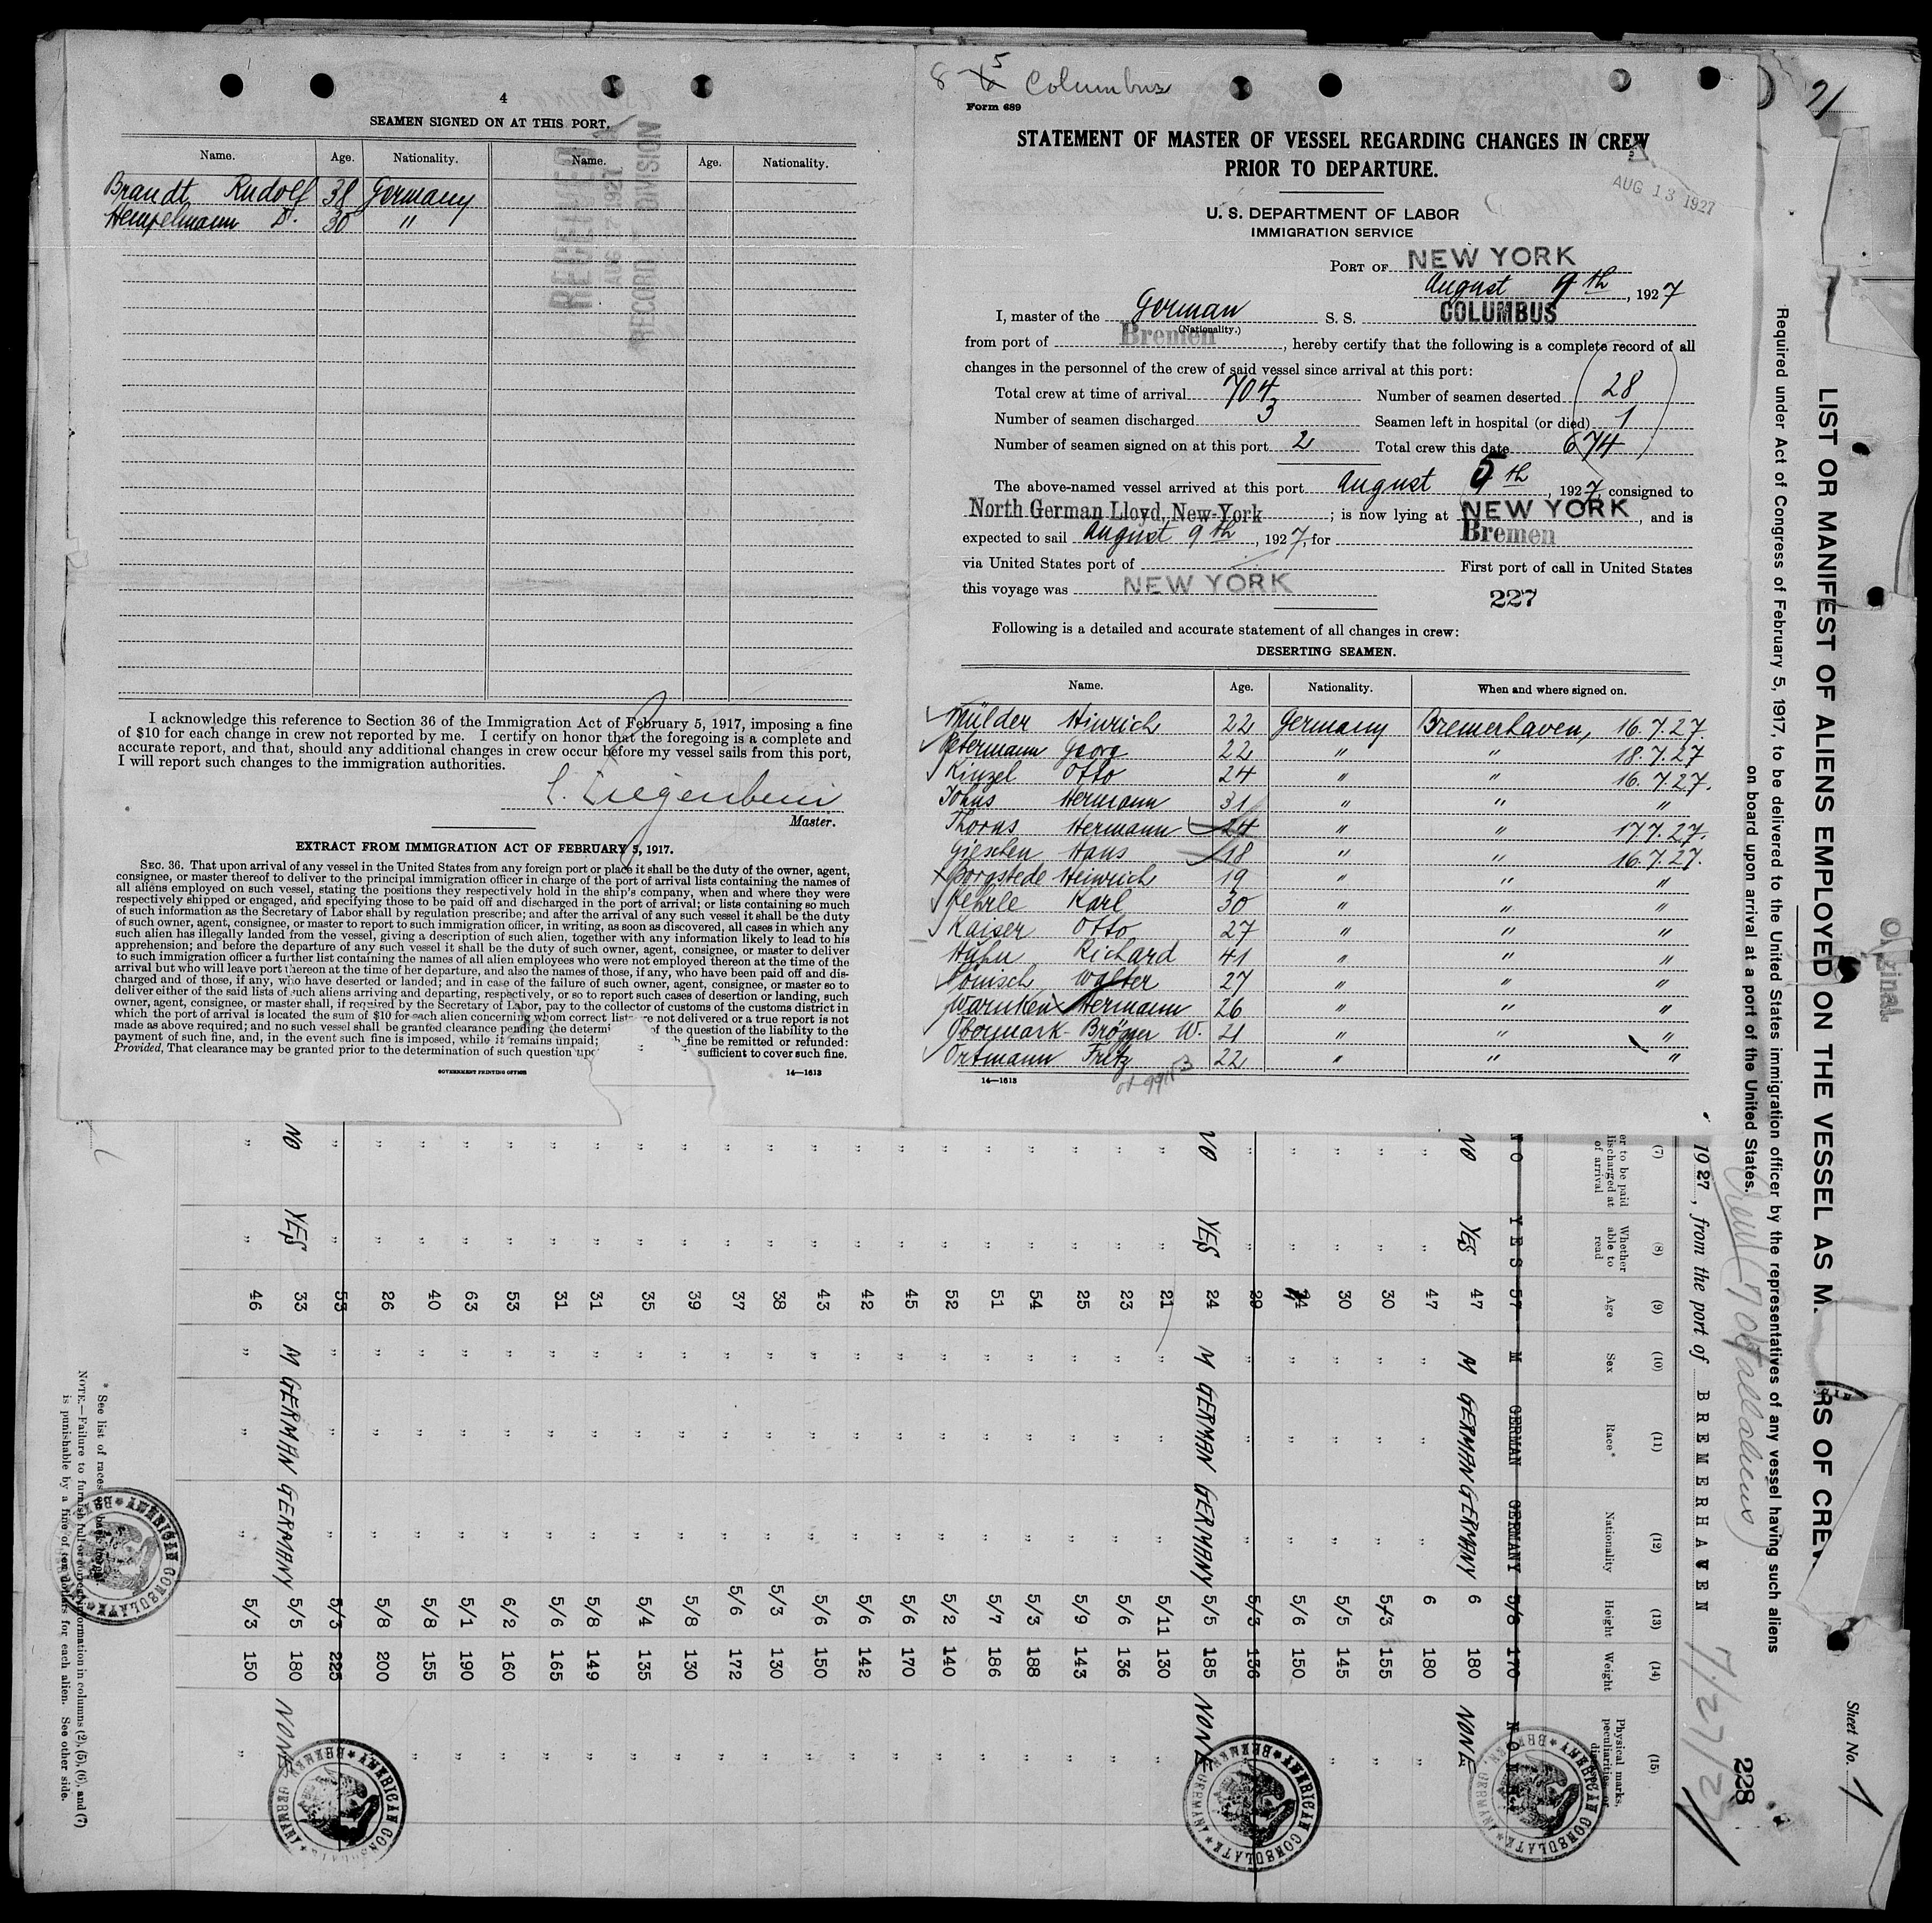 4
SEAMEN SIGNED ON AT THIS PORT.
Name. Age. Nationality. Name. Age. Nationality.
Brandt Rudolf 38 Germany
Hempelmann D. 30 "
RECEIVED
AUG 1927
RECORD DIVISION
I acknowledge this reference to Section 36 of the Immigration Act of February 5, 1917, imposing a fine
of $10 for each change in crew not reported by me. I certify on honor that the foregoing is a complete and
accurate report, and that, should any additional changes in crew occur before my vessel sails from this port,
I will report such changes to the immigration authorities.
Master.
EXTRACT FROM IMMIGRATION ACT OF FEBRUARY 5, 1917.
SEC. 36. That upon arrival of any vessel in the United States from any foreign port or place it shall be the duty of the owner, agent,
consignee, or master thereof to deliver to the principal immigration officer in charge of the port of arrival lists containing the names of
all aliens employed on such vessel, stating the positions they respectively hold in the ship's company, when and where they were
respectively shipped or engaged, and specifying those to be paid off and discharged in the port of arrival; or lists containing so much
of such information as the Secretary of Labor shall by regulation prescribe; and after the arrival of any such vessel it shall be the duty
of such owner, agent, consignee, or master to report to such immigration officer, in writing, as soon as discovered, all cases in which any
such alien has illegally landed from the vessel, giving a description of such alien, together with any information likely to lead to his
apprehension; and before the departure of any such vessel it shall be the duty of such owner, agent, consignee, or master to deliver
to such immigration officer a further list containing the names of all alien employees who were not employed thereon at the time of the
arrival but who will leave port thereon at the time of her departure, and also the names of those, if any, who have been paid off and dis-
charged and of those, if any, who have deserted or landed; and in case of the failure of such owner, agent, consignee, or master so to
deliver either of the said lists of such aliens arriving and departing, respectively, or so to report such cases of desertion or landing, such
owner, agent, consignee, or master shall, if required by the Secretary of Labor, pay to the collector of customs of the customs district in
which the port of arrival is located the sum of $10 for each alien concerning whom correct lists are not delivered or a true report is not
made as above required; and no such vessel shall be granted clearance pending the determi of the question of the liability to the
payment of such fine, and, in the event such fine is imposed, while it remains unpaid; fine be remitted or refunded:
Provided, That clearance may be granted prior to the determination of such question upo sufficient to cover such fine.
GOVERNMENT PRINTING OFFICE 14—1613
8 5 Columbus
Form 689
STATEMENT OF MASTER OF VESSEL REGARDING CHANGES IN CREW
PRIOR TO DEPARTURE.
AUG 13 1927
U. S. DEPARTMENT OF LABOR
IMMIGRATION SERVICE
PORT OF NEW YORK
August 9th, 1927
I, master of the German S. S. COLUMBUS
(Nationality.)
from port of Bremen, hereby certify that the following is a complete record of all
changes in the personnel of the crew of said vessel since arrival at this port:
Total crew at time of arrival 704 Number of seamen deserted 28
Number of seamen discharged 3 Seamen left in hospital (or died) 1
Number of seamen signed on at this port 2 Total crew this date 674
The above-named vessel arrived at this port August 5th, 1927, consigned to
North German Lloyd, New-York; is now lying at NEW YORK, and is
expected to sail August 9th, 1927, for Bremen
via United States port of First port of call in United States
this voyage was NEW YORK 227
Following is a detailed and accurate statement of all changes in crew:
DESERTING SEAMEN.
Name. Age. Nationality. When and where signed on.
Mülder Hinrich 22 Germany Bremerhaven, 16.7.27.
Petermann Georg 22 " " 18.7.27
Kinzel Otto 24 " " 16.7.27.
Johns Hermann 31 " " "
Thorns Hermann 24 " " 17.7.27.
Gieschen Hans 18 " " 16.7.27.
Borgstede Heinrich 19 " " "
Kehrle Karl 30 " " "
Kaiser Otto 27 " " "
Huhn Richard 41 " " "
Jönisch Walter 27 " " "
Warnken Hermann 26 " " "
Obermark-Bröyer W. 21 " " "
Ortmann Fritz 22 " " "
14—1613
21
LIST OR MANIFEST OF ALIENS EMPLOYED ON THE VESSEL AS M RS OF CREW
Required under Act of Congress of February 5, 1917, to be delivered to the United States immigration officer by the representatives of any vessel having such aliens
on board upon arrival at a port of the United States.
Original
Sheet No. 1
228
1927, from the port of BREMERHAVEN 7/27/27
(7) (8) (9) (10) (11) (12) (13) (14) (15)
er to be paid discharged at of arrival Whether able to read Age Sex Race* Nationality Height Weight Physical marks, peculiarities, or disease
NO YES 57 M GERMAN GERMANY 5/8 170 NONE
NO YES 47 M GERMAN GERMANY 6 180 NONE
" " 47 " " " 6 180 "
" " 30 " " " 5/3 155 "
" " 30 " " " 5/5 145 "
" " 24 " " " 5/6 150 "
" " 29 " " " 5/3 136 "
NO YES 24 M GERMAN GERMANY 5/5 185 NONE
" " 21 " " " 5/11 130 "
" " 23 " " " 5/6 136 "
" " 25 " " " 5/9 143 "
" " 54 " " " 5/3 188 "
" " 51 " " " 5/7 186 "
" " 52 " " " 5/2 140 "
" " 45 " " " 5/6 170 "
" " 42 " " " 5/6 142 "
" " 43 " " " 5/6 150 "
" " 38 " " " 5/3 130 "
" " 37 " " " 5/6 172 "
" " 39 " " " 5/8 130 "
" " 35 " " " 5/4 135 "
" " 31 " " " 5/8 149 "
" " 31 " " " 5/6 165 "
" " 53 " " " 6/2 160 "
" " 63 " " " 5/1 190 "
" " 40 " " " 5/8 155 "
" " 26 " " " 5/8 200 "
" " 53 " " " 5/3 225 "
NO YES 33 M GERMAN GERMANY 5/5 180 NONE
" " 46 " " " 5/3 150 "
* See list of races on back hereof.
NOTE.—Failure to furnish full or correct information in columns (2), (5), (6), and (7)
is punishable by a fine of ten dollars for each alien. See other side.
AMERICAN CONSULATE BREMEN, GERMANY
AMERICAN CONSULATE BREMEN, GERMANY
AMERICAN CONSULATE BREMEN, GERMANY
AMERICAN CONSULATE BREMEN, GERMANY